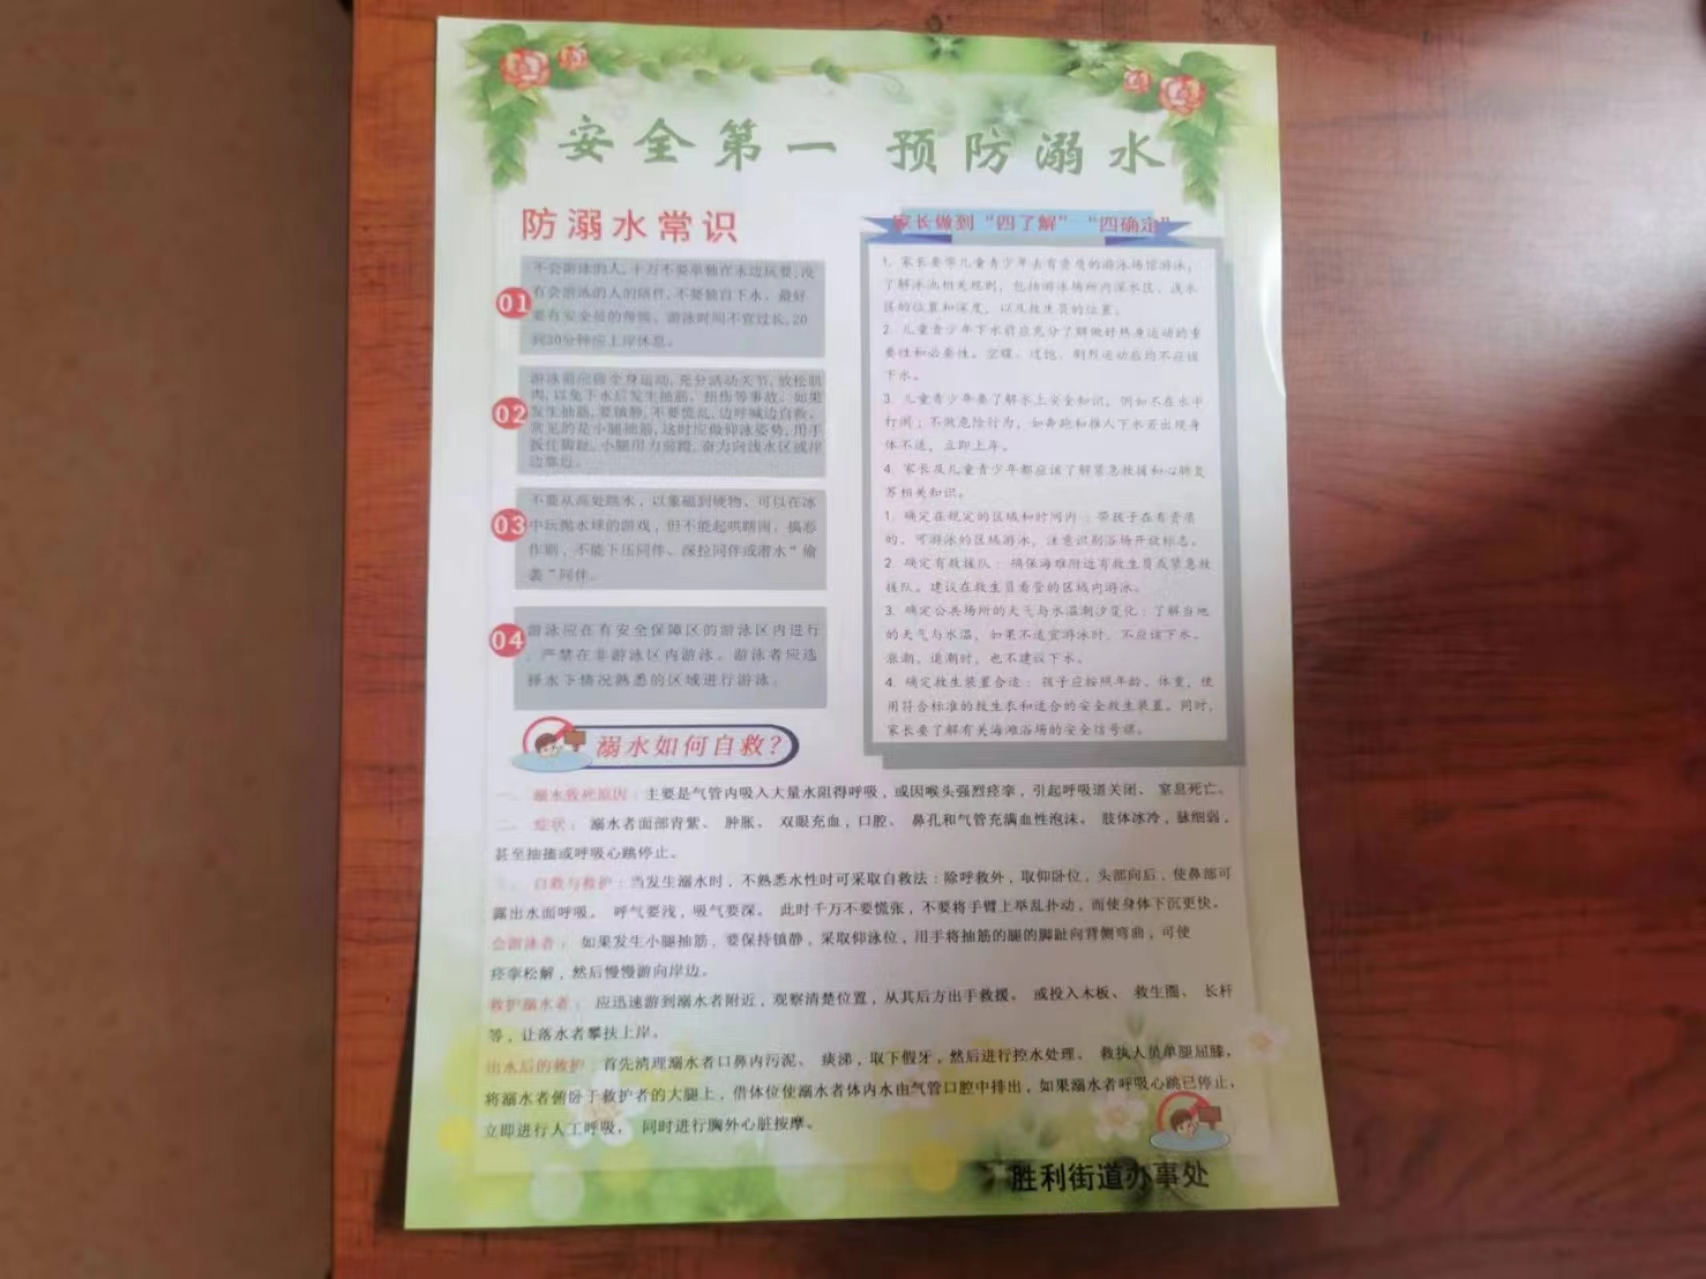 安全第一 预防溺水
防溺水常识
01
不会游泳的人,千万不要单独在水边玩耍,没
有会游泳的人的陪伴,不要独自下水。最好
要有安全员的保护。游泳时间不宜过长,20
到30分钟应上岸休息。
02
游泳前应做全身运动,充分活动关节,放松肌
肉,以免下水后发生抽筋、扭伤等事故。如果
发生抽筋,要镇静,不要慌乱,边呼喊边自救。
常见的是小腿抽筋,这时应做仰泳姿势,用手
扳住脚趾,小腿用力前蹬,奋力向浅水区或岸
边靠近。
03
不要从高处跳水,以免碰到硬物。可以在水
中玩抛水球的游戏,但不能起哄瞎闹,搞恶
作剧,不能下压同伴、深拉同伴或潜水“偷
袭”同伴。
04
游泳应在有安全保障区的游泳区内进行
,严禁在非游泳区内游泳。游泳者应选
择水下情况熟悉的区域进行游泳。
家长做到“四了解”“四确定”
1. 家长要带儿童青少年去有资质的游泳场馆游泳;
了解泳池相关规则,包括游泳场所内深水区、浅水
区的位置和深度,以及救生员的位置。
2. 儿童青少年下水前应充分了解做好热身运动的重
要性和必要性。空腹、过饱、剧烈运动后均不应该
下水。
3. 儿童青少年要了解水上安全知识,例如不在水中
打闹;不做危险行为,如奔跑和推人下水若出现身
体不适,立即上岸。
4. 家长及儿童青少年都应该了解紧急救援和心肺复
苏相关知识。
1. 确定在规定的区域和时间内:带孩子在有资质
的、可游泳的区域游泳,注意识别浴场开放标志。
2. 确定有救援队:确保海滩附近有救生员或紧急救
援队。建议在救生员看管的区域内游泳。
3. 确定公共场所的天气与水温潮汐变化:了解当地
的天气与水温,如果不适宜游泳时,不应该下水。
涨潮、退潮时,也不建议下水。
4. 确定救生装置合适:孩子应按照年龄、体重,使
用符合标准的救生衣和适合的安全救生装置。同时,
家长要了解有关海滩浴场的安全信号旗。
溺水如何自救?
一、 溺水致死原因:主要是气管内吸入大量水阻碍呼吸,或因喉头强烈痉挛,引起呼吸道关闭、 窒息死亡。
二、 症状: 溺水者面部青紫、 肿胀、 双眼充血,口腔、 鼻孔和气管充满血性泡沫。 肢体冰冷,脉细弱,
甚至抽搐或呼吸心跳停止。
三、 自救与救护:当发生溺水时,不熟悉水性时可采取自救法:除呼救外,取仰卧位,头部向后,使鼻部可
露出水面呼吸。 呼气要浅,吸气要深。 此时千万不要慌张,不要将手臂上举乱扑动,而使身体下沉更快。
会游泳者: 如果发生小腿抽筋,要保持镇静,采取仰泳位,用手将抽筋的腿的脚趾向背侧弯曲,可使
痉挛松解,然后慢慢游向岸边。
救护溺水者: 应迅速游到溺水者附近,观察清楚位置,从其后方出手救援。 或投入木板、 救生圈、 长杆
等,让落水者攀扶上岸。
出水后的救护:首先清理溺水者口鼻内污泥、 痰涕,取下假牙,然后进行控水处理。 救执人员单腿屈膝,
将溺水者俯卧于救护者的大腿上,借体位使溺水者体内水由气管口腔中排出,如果溺水者呼吸心跳已停止,
立即进行人工呼吸, 同时进行胸外心脏按摩。
胜利街道办事处